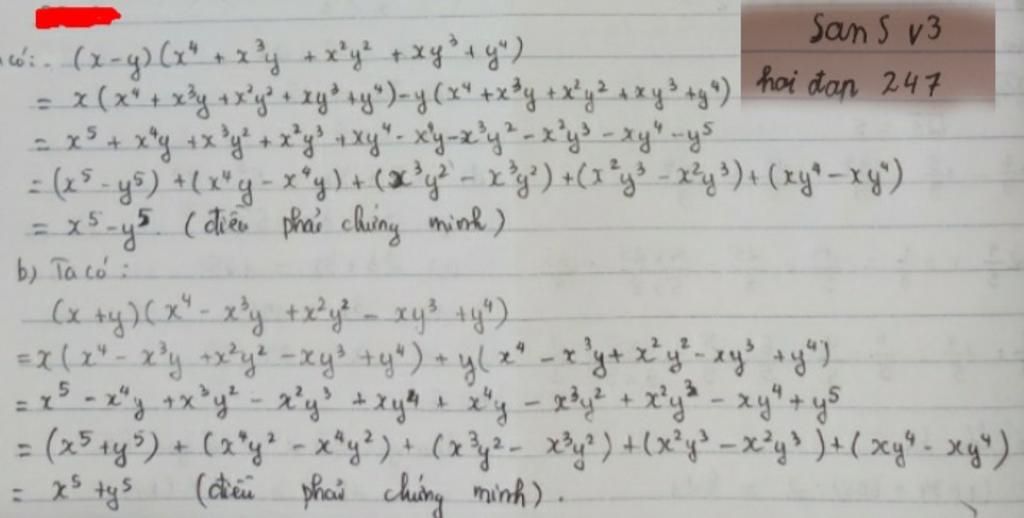 có: (x-y)(x⁴ + x³y + x²y² + xy³ + y⁴)
SanS v3
hoi đap 247
= x(x⁴ + x³y + x²y² + xy³ + y⁴) - y(x⁴ + x³y + x²y² + xy³ + y⁴)
= x⁵ + x⁴y + x³y² + x²y³ + xy⁴ - x⁴y - x³y² - x²y³ - xy⁴ - y⁵
= (x⁵ - y⁵) + (x⁴y - x⁴y) + (x³y² - x³y²) + (x²y³ - x²y³) + (xy⁴ - xy⁴)
= x⁵ - y⁵. (điều phải chứng minh)
b) Ta có:
(x + y)(x⁴ - x³y + x²y² - xy³ + y⁴)
= x(x⁴ - x³y + x²y² - xy³ + y⁴) + y(x⁴ - x³y + x²y² - xy³ + y⁴)
= x⁵ - x⁴y + x³y² - x²y³ + xy⁴ + x⁴y - x³y² + x²y³ - xy⁴ + y⁵
= (x⁵ + y⁵) + (x⁴y² - x⁴y²) + (x³y² - x³y²) + (x²y³ - x²y³) + (xy⁴ - xy⁴)
= x⁵ + y⁵ (điều phải chứng minh).